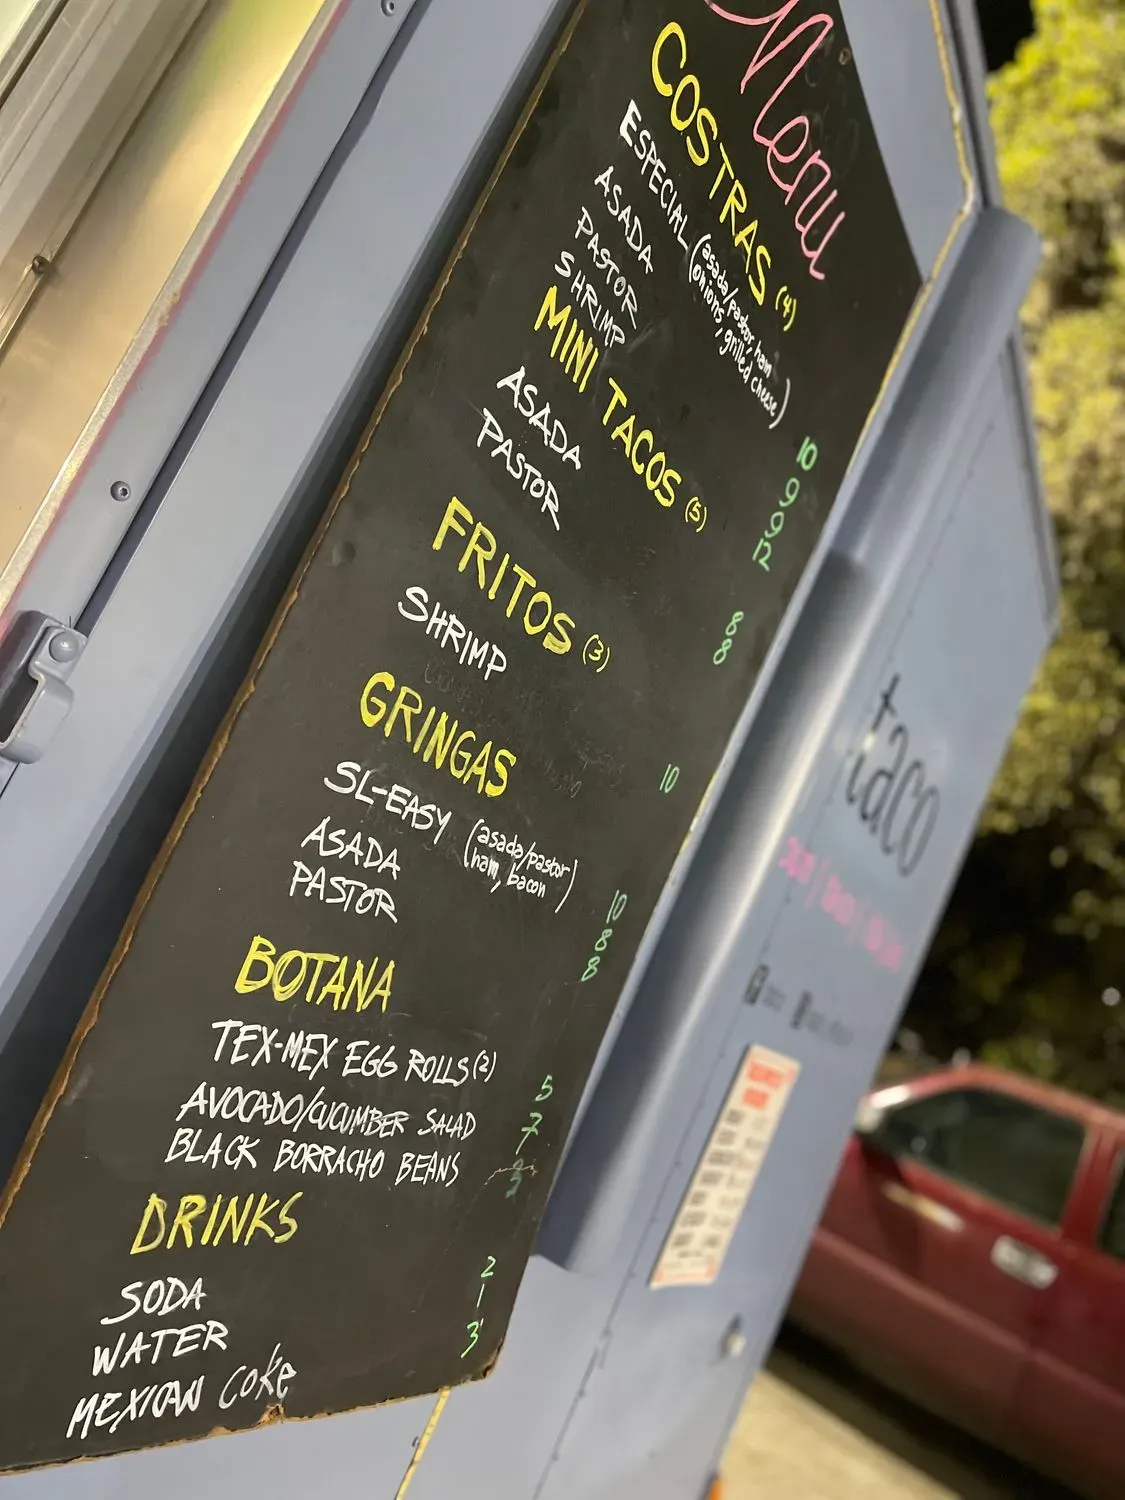 Menu
COSTRAS (4)
ESPECIAL (asada/pastor, ham
onions, grilled cheese) 10
ASADA 9
PASTOR 9
SHRIMP 12
MINI TACOS (5)
ASADA 8
PASTOR 8
FRITOS (3)
SHRIMP 10
GRINGAS
SL-EASY (asada/pastor)
ham, bacon 10
ASADA 8
PASTOR 8
BOTANA
TEX-MEX EGG ROLLS (2) 5
AVOCADO/CUCUMBER SALAD 7
BLACK BORRACHO BEANS
DRINKS
SODA 2
WATER 1
MEXICAN COKE 3
taco